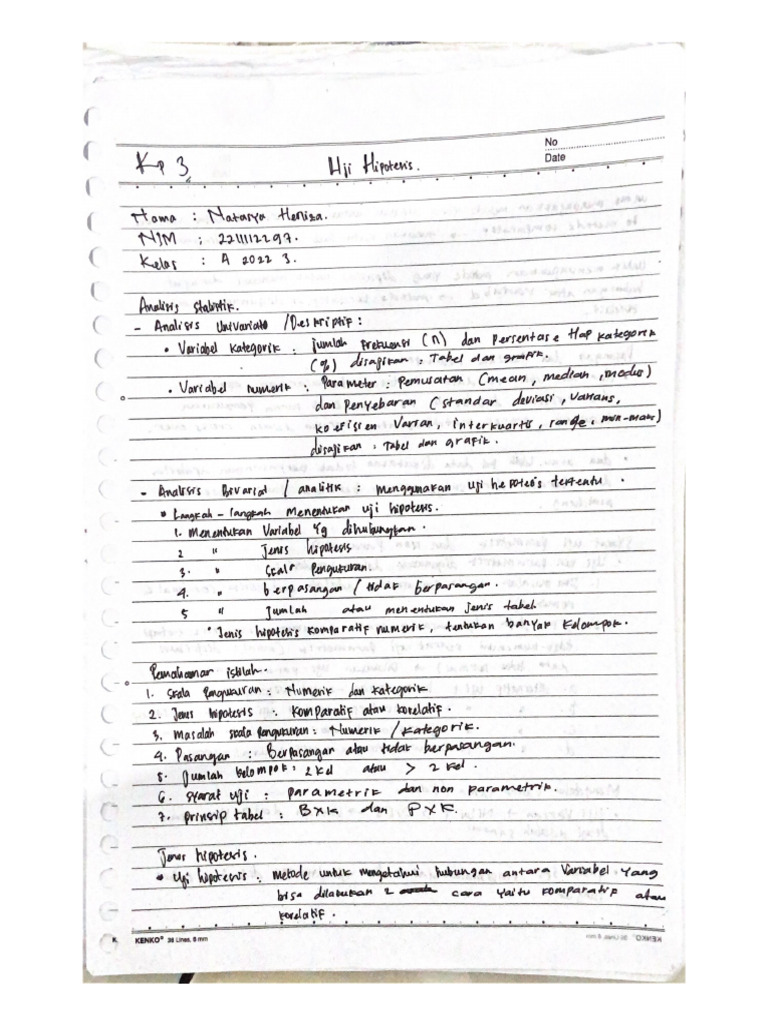 No
Kp 3 Uji Hipotesis.
Date
Nama : Natasya Heniza.
NIM : 2211112297.
Kelas : A 2022 3.
Analisis statistik.
- Analisis Univariate / Deskriptif :
• Variabel kategorik : jumlah frekuensi (n) dan Persentase tiap kategorik
(%) disajikan : Tabel dan grafik.
• Variabel numerik : Parameter : Pemusatan (mean, median, modus)
dan penyebaran (standar deviasi, varians,
koefisien varian, interkuartis, range, min-maks)
disajikan : Tabel dan grafik.
- Analisis Bivariat / analitik : menggunakan uji hepotesis tertentu.
• Langkah - langkah menentukan uji hipotesis.
1. Menentukan Variabel yg dihubungkan.
2 " Jenis hipotesis
3. " Skala Pengukuran.
4. " berpasangan / tidak berpasangan.
5 " Jumlah atau menentukan Jenis tabel
• Jenis hipotesis komparatif numerik, tentukan banyak kelompok.
Pemahaman istilah.
1. Skala Pengukuran : Numerik dan kategorik
2. Jenis hipotesis : Komparatif atau korelatif.
3. Masalah skala pengukuran : Numerik / Kategorik.
4. Pasangan : Berpasangan atau tidak berpasangan.
5. Jumlah kelompok : 2 kel atau > 2 kel.
6. Syarat uji : parametrik dan non parametrik.
7. prinsip tabel : BXK dan PXK.
Jenis hipotesis.
• Uji hipotesis : metode untuk mengetahui hubungan antara Variabel yang
bisa dilakukan 2 cara yaitu komparatif atau
korelatif.
K KENKO® 36 Lines, 8 mm